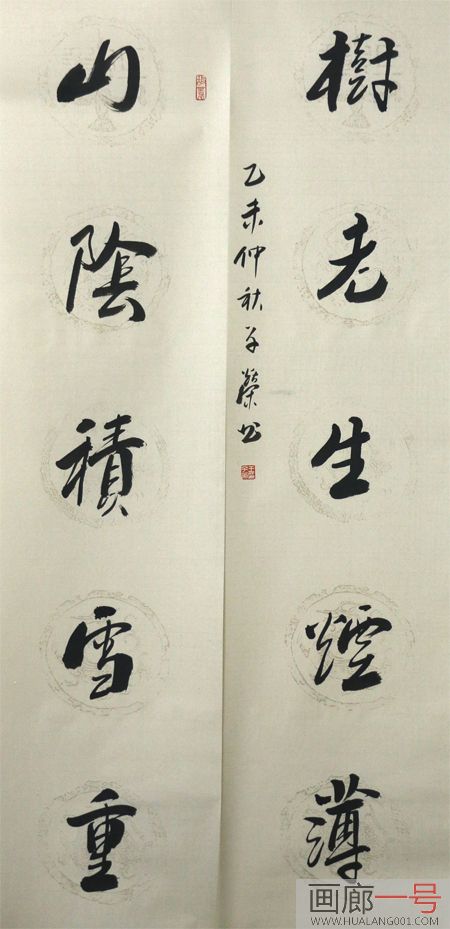 樹老生煙薄
乙未仲秋子榮书
山陰積雪重
画廊一号
WWW.HUALANG001.COM